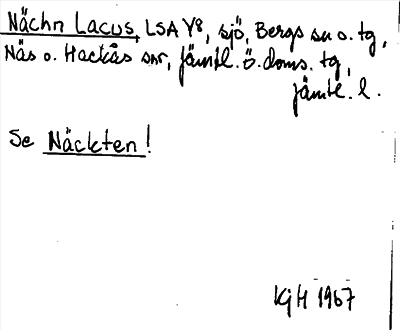 Nächn Lacus, LSA Y8, sjö, Bergs sn o. tg,
Näs o. Hackås snr, Jämtl. ö. doms. tg,
Jämtl. l.
Se Näckten!
KgH 1967